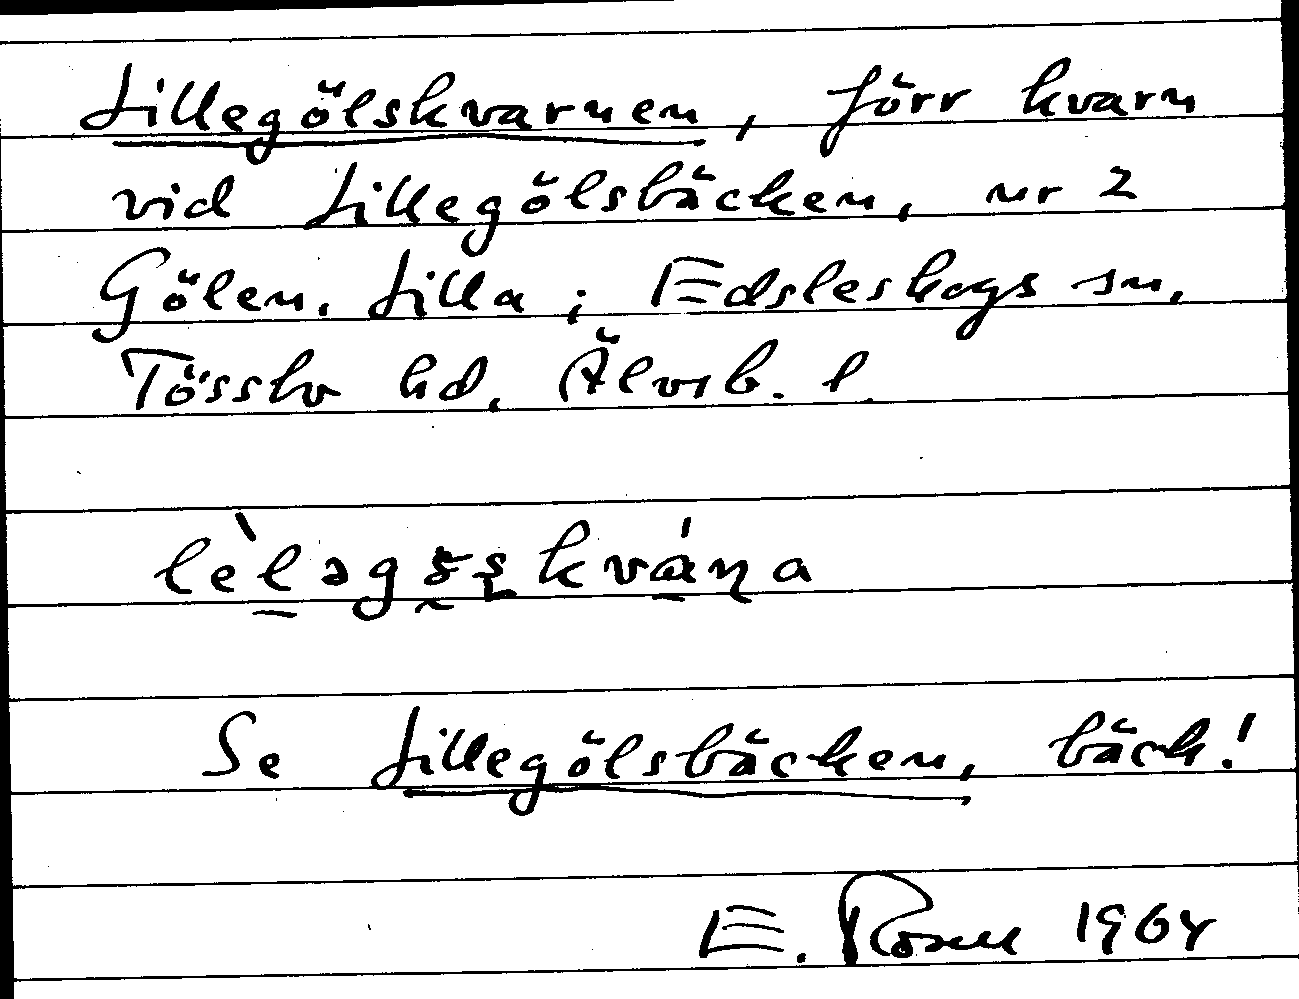 Lillegölskvarnen, förr kvarn
vid Lillegölsbäcken, nr 2
Gölen, Lilla; Edsleskogs sn,
Tössbo hd, Älvsb. l.
Se Lillegölsbäcken, bäck!
E. Rosell 1964